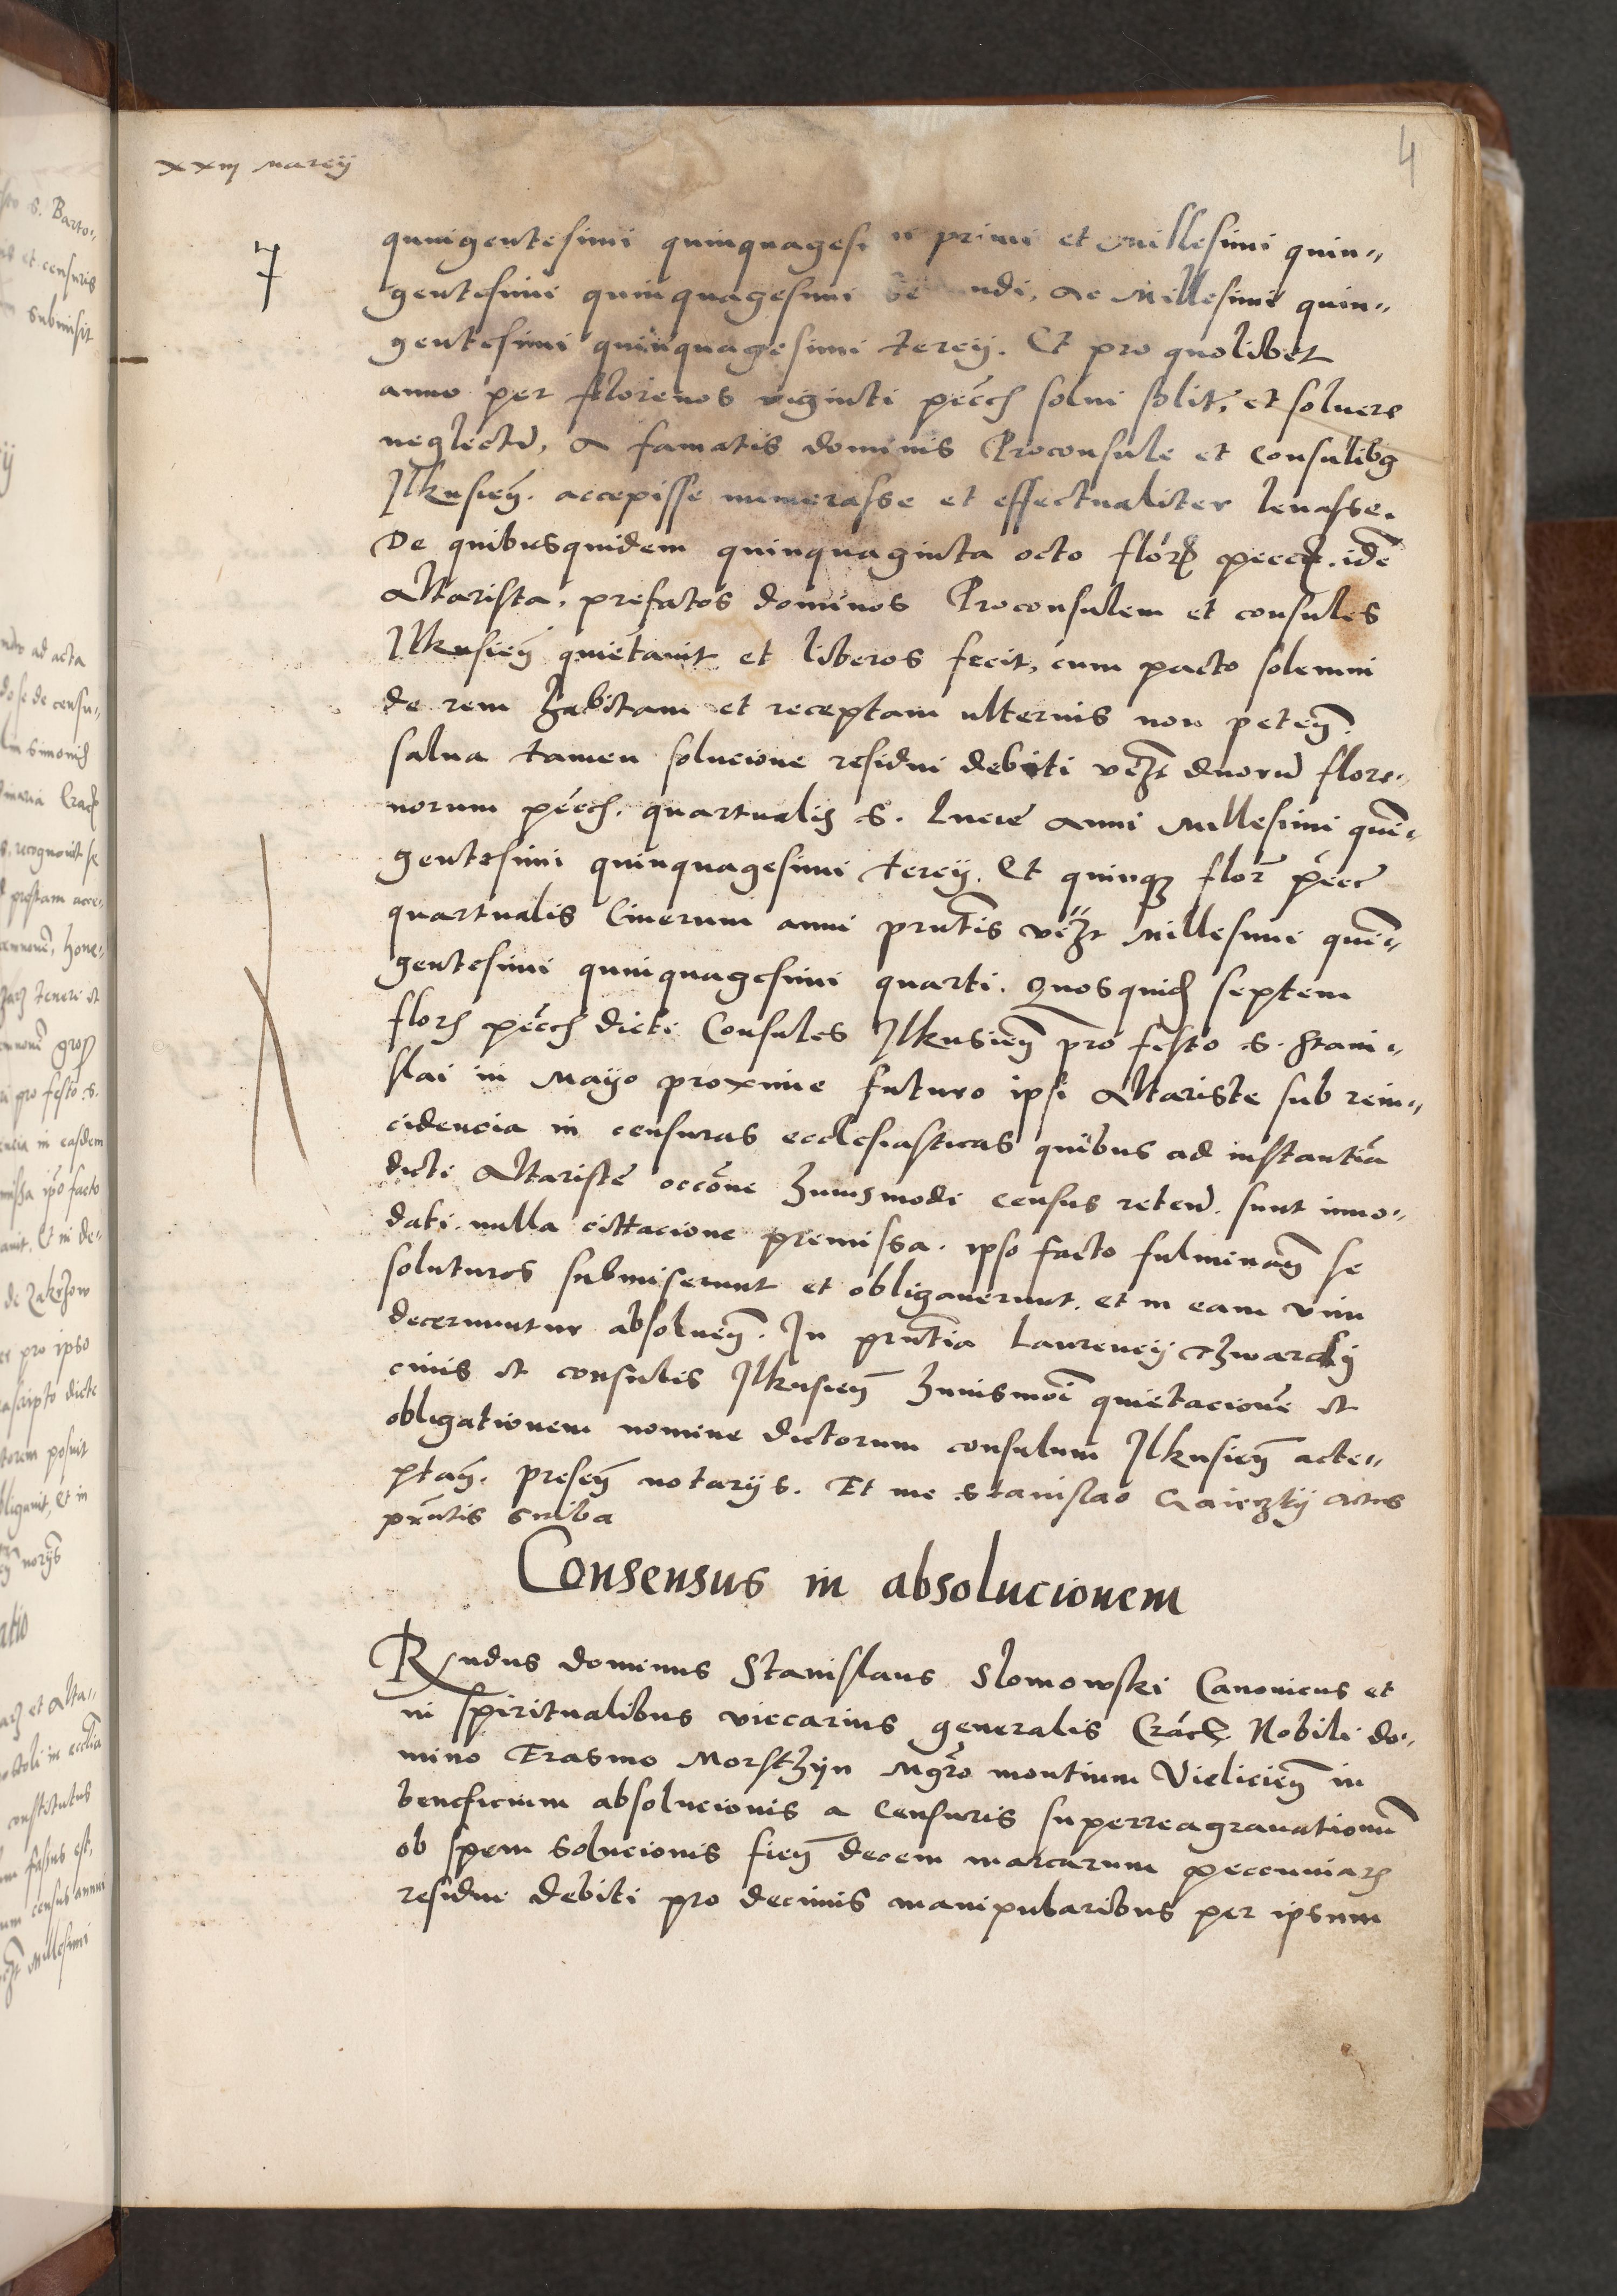 xxiij Marcij
4
7
quingentesimi quinquagesi i primi et Millesimi quin„
gentesimi quinquagesimi se ndi, ac Millesimi quin„
gentesimi quinquagesimi tercij. Et pro quolibet
anno per florenos viginti pecc̄ solui solit, et soluere
neglectū, A famatis dominis Proconsule et Consulibꝫ
Ilkusień. accepisse numerasse et effectualiter leuasse.
De quibusquidem quinquaginta octo florꝭ pecc. idē
Altarista, prefatos dominos Proconsulem et consules
Ilkusień quietauit et liberos fecit, cum pacto solemni
de rem habitam et receptam ulterius non peteń.
salua tamen solucione residui debiti vꝫt duorū flore„
norum pecc̄. quartualis S. Lucie Anni Millesimi quin„
gentesimi quinquagesimi tercij. Et quinqꝫ flor pecc
quartualis Cinerum anni prntis vꝫt Millesimi quin„
gentesimi quinquagesimi quarti. Quosquidē septem
flor pecc̄ dicti Consules Ilkusień pro festo S. Stani„
slai in Mayo proxime futuro ipsi Altariste sub rein„
cidencia in censuras ecclesiasticas quibus ad instantiā
dicti Altariste occōne huiusmodi census retenū. sunt inno„
dati. nulla cittacione premissa. ipso facto fulminań se
soluturos submiserunt et obligauerunt. et in eam vim
decernuntur absolueń. In prntia Laurencij
ciuis et consulis Ilkusień huiusmōi quietacionē et
obligationem nomine dictorum consulum Ilkusień acce„
ptań. preseń notarijs. Et me Stanislao actus
prntis scriba
Consensus in absolucionem
Rndus dominus Stanislaus Slomowski Canonicus et
in spiritualibus viccarius generalis Crac. Nobili do„
mino Erasmo Morstzijn Mgro montium Vieliciēn in
beneficium absolucionis a Censuris superreagrauationū
ob spem solucionis fień decem marcarum peccuniar
residui debiti pro decimis manipularibus per ipsum